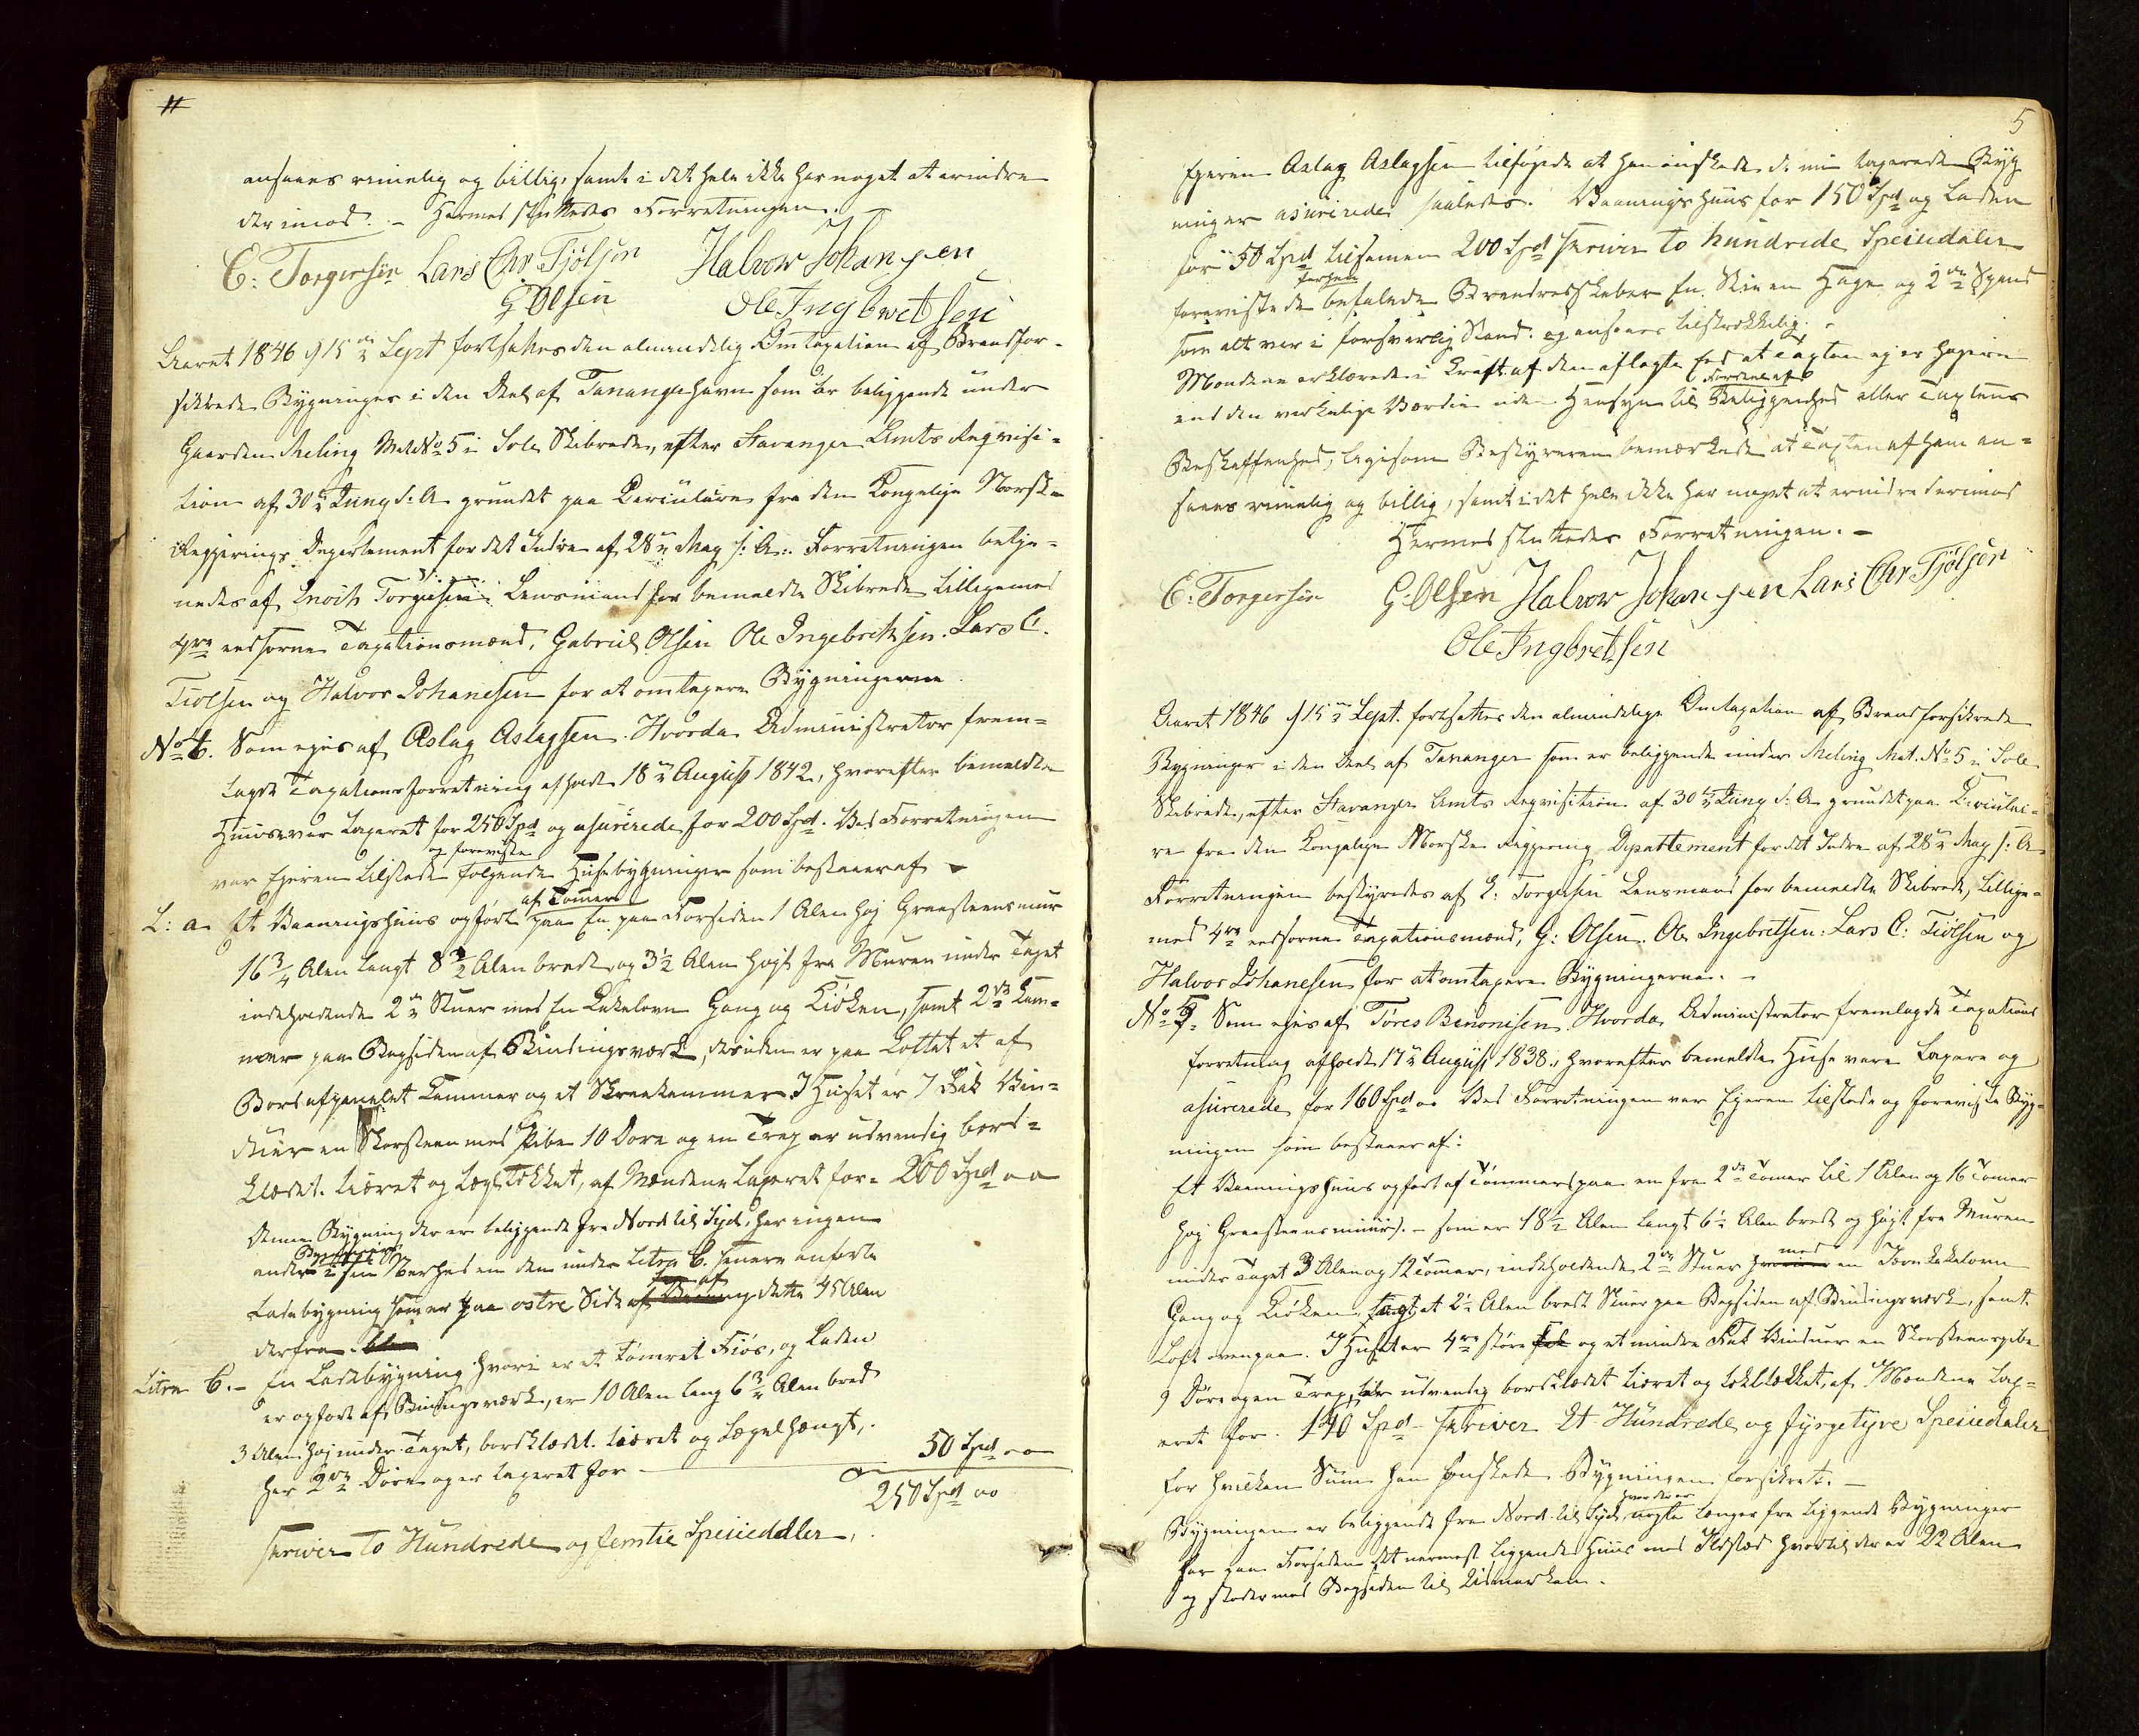 ansaaes rimelig og billig, samt i det hele ikke har noget at erindre
derimod. – Hermed sluttedes Forretningen. –
E: Torgersen Lars Chr Tjølsen Halvor Johannesen
G Olsen Ole Ingbretsen
Aaret 1846 d 15de Sept fortsattes den almindelig Omtaxation af Brandfor-
sikrede Bygninger i den Deel af Tananger havn som er beliggende under
Gaarden Meling Mat No 5 i Sole Skibrede, efter Stavanger Amts Reqvisi-
tion af 30te Juny d: A grundet paa Circulære fra den Kongelige Norske
Regjerings Departement for det Indre af 28de May s: A:. Forretningen betje-
nedes af Enoch Torgersen Lensmand for bemeldte Skibrede tilligemed
4re eedsorne Taxationsmænd, Gabriel Olsen Ole Ingebretsen. Lars C.
Tiølsen og Halvor Johanesen for at omtaxere Bygningerne.
No 6. Som eies af Aslag Aslagsen. Hvorda Administrator frem-
lagde Taxationsforretning afholdt 18de August 1842, hvorefter bemeldte
Huus var taxeret for 250 Spd og asurerede for 200 Spd. Ved Forretningen
og foreviste
var Eieren tilstede følgende Husebygninger som bestaaer af
af Tømmer
L: a. Et Vaaningshuus opført paa En paa Forsiden 1 Alen høj Graasteensmur
16 3/4 Alen langt 8 1/2 Alen bredt og 3 1/2 Alen højt fra Muren under Taget
indeholdende 2de Stuer med En Kakelovn Gang og Kiøken, samt 2de Kam-
mer paa Bagsiden af Bindingsværk, desuden er paa Loftet et af
Bord afpanelet Kammer og et Skraakammer I Huset er 7 Fak Vin-
duer en Skorsteen med Pibe 10 Døre og en Trap er udvendig bord-
klædt. tiæret og tegltækket, af Mændene taxeret for - 200 Spd oo
Denne Bygning der er beliggende fra Nord til Syd, har ingen
Bygning
anden i sin Nærhed en den under Litra b. senere anførte
Ladebygning som er paa østre Side af dette 45 Alen
derfra.
Litra b. – En Ladebygning hvori er et tømret Fiøs, og Laden
er opført af Bindingsværk, er 10 Alen lang 6 3/4 Alen bred
3 Alen høj under Taget, bordklædt. tiæret og Teglhængt,
har 2de Døre og er taxeret for – 50 Spd oo
250 Spd oo
skriver to Hundrede og femtie Speciedaler.
5
Eieren Aslag Aslagsen tilføiede at han ønskede de nu taxerede Byg
ninger asurerede saaledes. Vaaningshuus for 150 Spd og Laden
for 50 Spd tilsamen 200 Spd skriver to hundrede Speciedaler
foreviste de befalede Brandredskaber En Stie en Hage og 2de Spand
som alt var i forsvarlig Stand. og ansaaes tilstrækkelig. -
Mændene erklærede i Kraft af den aflagte Eed at Taxten ej er højere
Fordeel af
end den verkelige Værdie uden Hensyn til Beliggenhed eller Taxtens
Beskaffenhed, ligesom Bestyreren bemærkede at Taxten af ham an-
saaes rimelig og billig, samt i det hele ikke har noget at erindre derimod
Hermed sluttedes Forretningen. –
E: Torgersen G: Olsen Halvor Johannesen Lars Chr Tjølsen
Ole Ingbretsen
Aaret 1846 d 15de Sept. fortsattes den almindelige Omtaxation af Brandforsikrede
Bygninger i den Deel af Tananger som er beliggende under Meling Mat. No 5 i Sole
Skibrede, efter Stavanger Amts Reqvisition af 30te Juny d: A grundet paa Circulæ-
re fra den Kongelige Norske Regjering Departtement for det Indre af 28de May s: A
Forretningen bestyredes af E: Torgersen Lensmand for bemeldte Skibrede, tillige-
med 4re eedsorne Taxationsmænd, G: Olsen. Ole Ingebretsen. Lars C: Tiølsen og
Halvor Johanesen for at omtaxere Bygningerne. –
No 7. Som eies af Tøres Benonisen Hvorda Administrator fremlagde Taxations
forretning afholdt 17de August 1838, hvorefter bemeldte Huse vare taxere og
asurerede for 160 Spd oo Ved Forretningen var Eieren tilstede og foreviste Byg-
ningen som bestaaer af:
Et Vaaningshuus opført af Tømmer (paa en fra 2de Tomer til 1 Alen og 16 Tomer
høj Graasteensmuur). – som er 18 1/2 Alen langt 6 1/2 Alen bredt og højt fra Muren
med
under Taget 3 Alen og 12 Tomer, indeholdende 2de Stuer en Jern Kakelovn
Gang og Kiøken, samt et 2 1/2 Alen bredt Skuer paa Bagsiden af Bindingsværk, samt
Loft ovenpaa. I Huset er 4re støre og et mindre Fak Vinduer en Skorsteenspibe
9 Døre og en Trap, er udvendig bordklædet tiæret og tekltækket, af Mændene tax-
eret for. 140 Spd – skriver Et Hundrede og fyrgetyve Speciedaler
for hvilken Sum han ønskede Bygningen forsikret. –
hvor der er
Bygningen er beliggende fra Nord til Syd, nogle længer fra liggende Bygninger
har paa Forsiden det nærmest liggende Huus med Ildsted hvortil der er 22 Alen
og støder med Bagsiden til Udmarken.